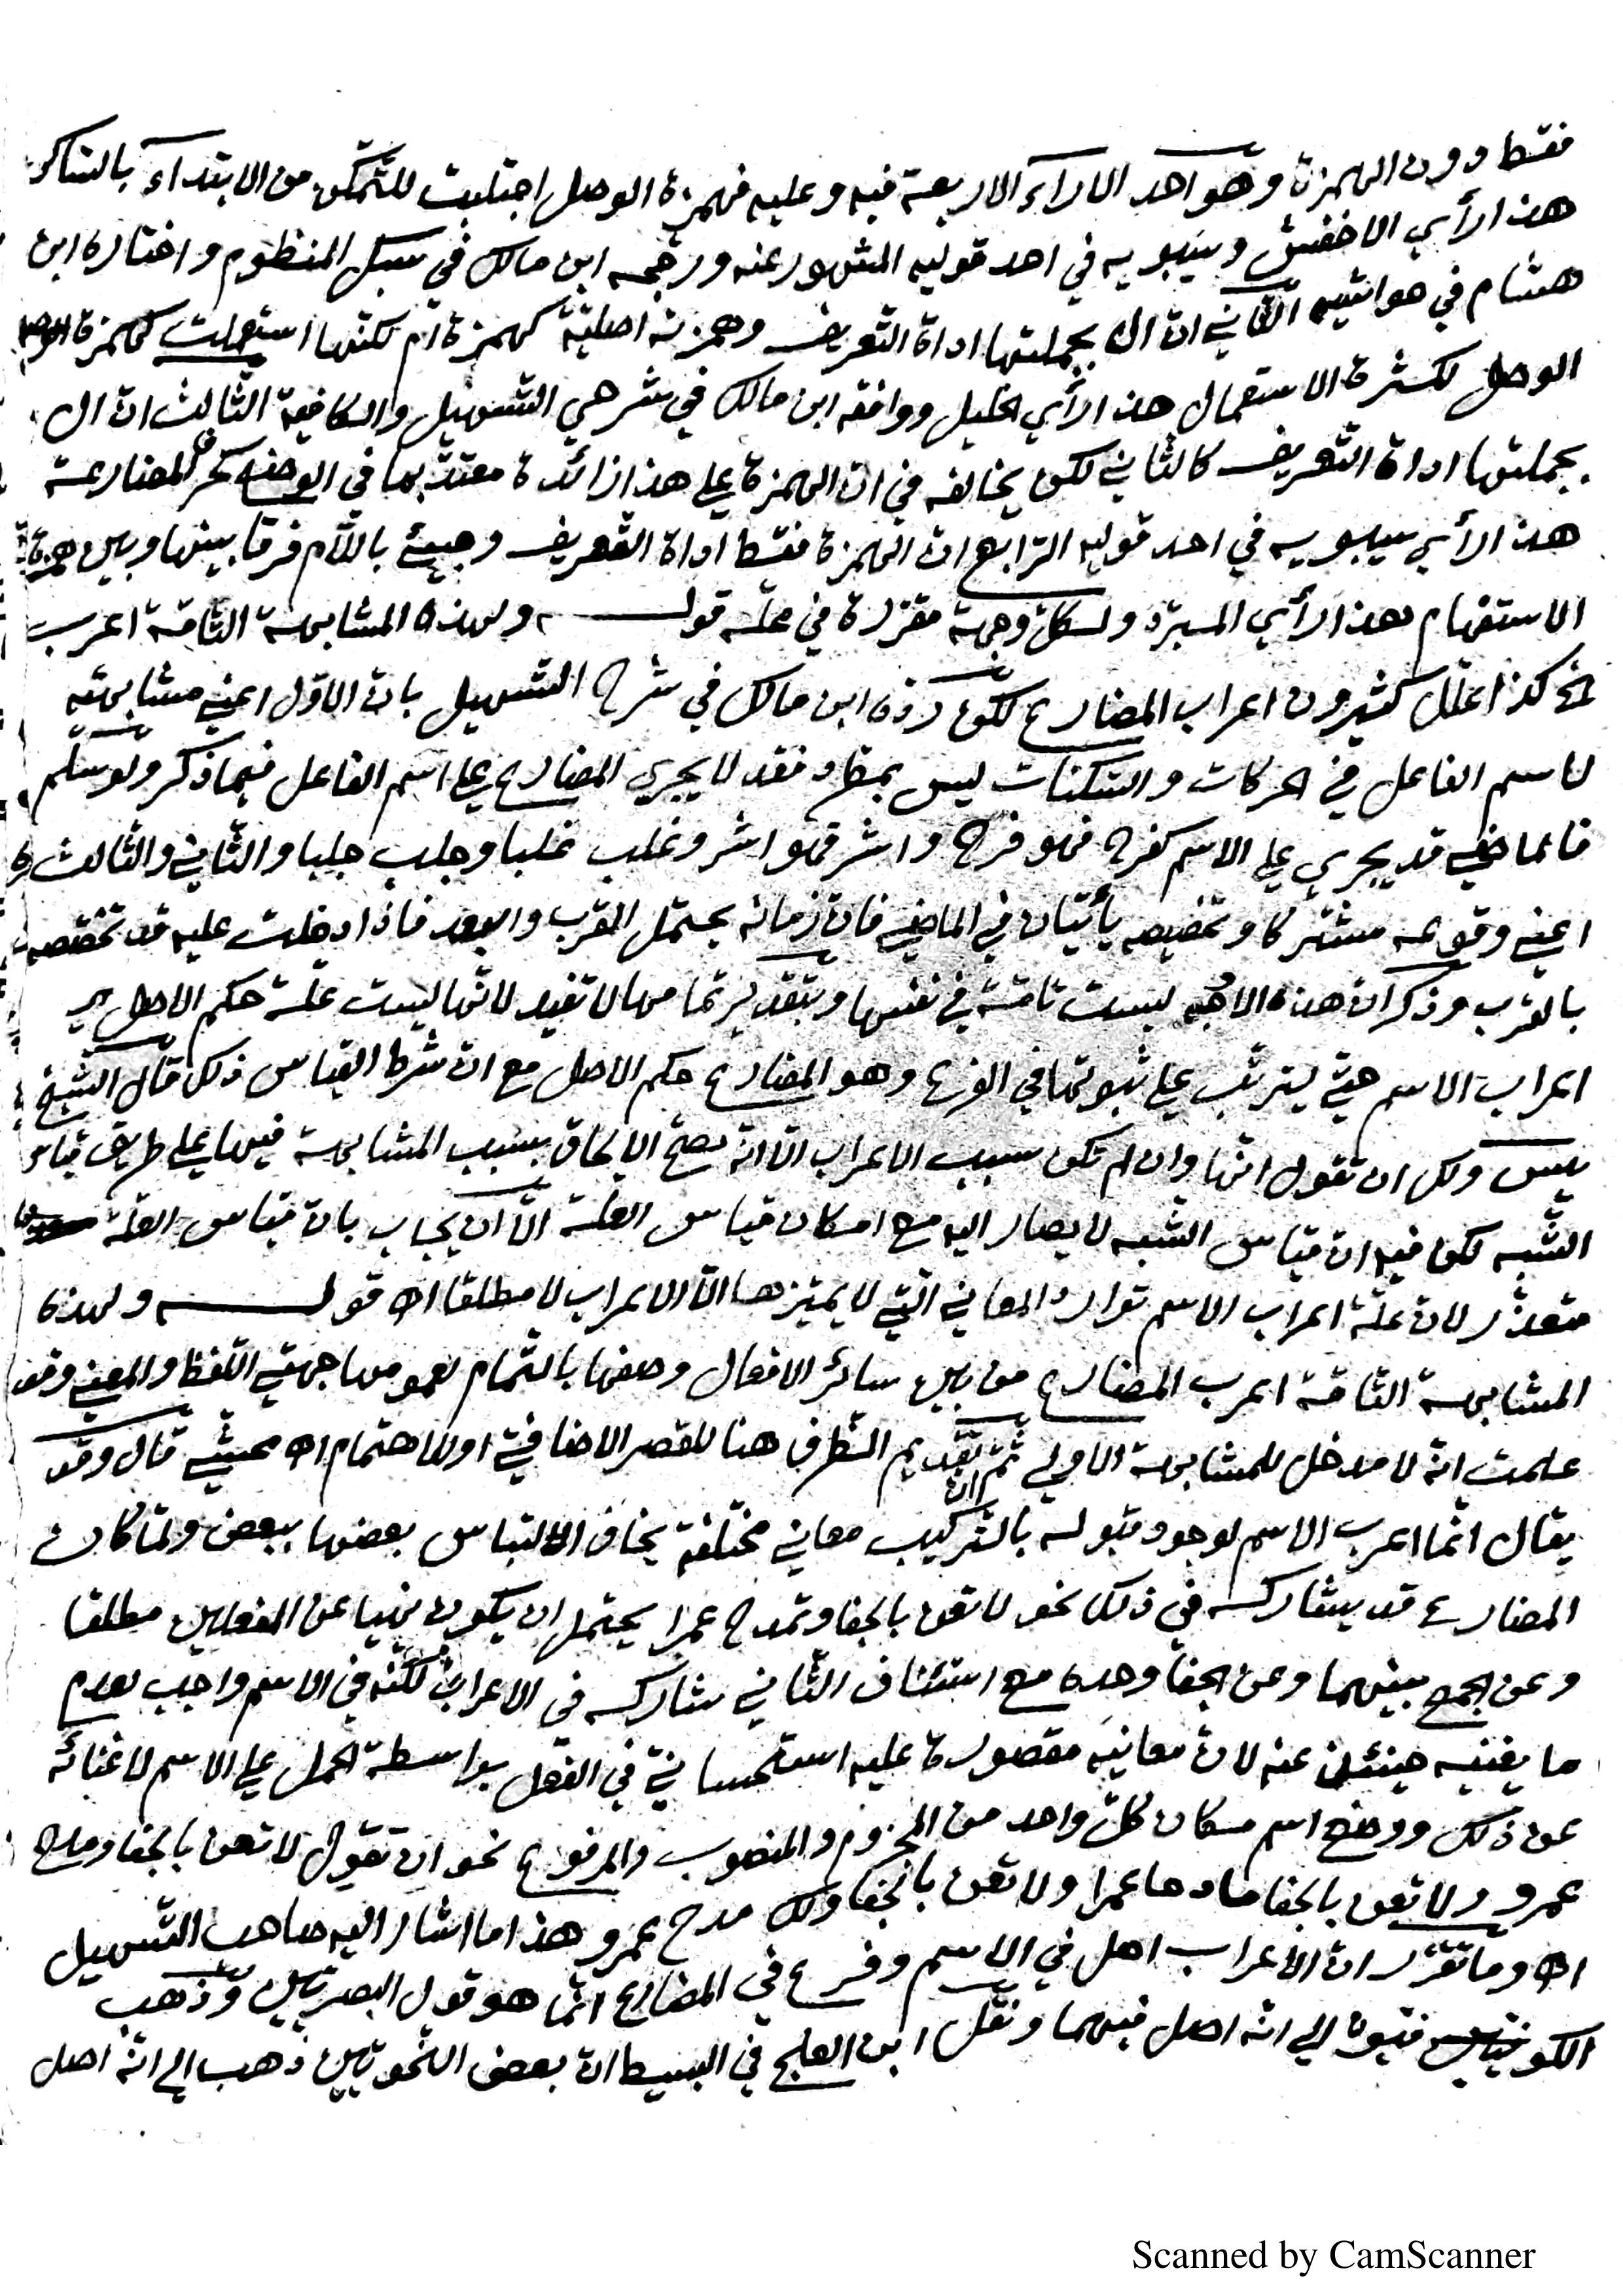 فقط دون الهمزة وهو احد الاراء الاربعة فيه وعليه فهمزة الوصل اجتلبت للتمكن من الابتداء بالساكن
هذا رأي الاخفش وسيبويه في احد قوليه المشهور عنه ورجحه ابن مالك في سبك المنظوم واختاره ابن
هشام في حواشيه الثاني ان ال بجملتها اداة التعريف وهمزته اصلية كهمزة ام لكنها استعملت كهمزة
الوصل لكثرة الاستعمال هذا رأي الخليل ووافقه ابن مالك في شرحي التسهيل والكافية الثالث ان ال
بجملتها اداة التعريف كالثاني لكن يخالفه في ان الهمزة على هذا زائدة معتد بها في الوضع كحرف المضارعة
هذا رأي سيبويه في احد قوليه الرابع ان الهمزة فقط اداة التعريف وجيئ باللام فرقا بينها وبين همزة
الاستفهام هذا رأي المبرد ولكل وجهة مقررة في محله قوله ولهذه المشابهة التامة اعرب
الخ كذا علل كثيرون اعراب المضارع لكن رده ابن مالك في شرح التسهيل بان الاول اعني مشابهته
لاسم الفاعل في الحركات والسكنات ليس بمطرد فقد لا يجري المضارع على اسم الفاعل فيما ذكر ولو سلم
فالماضي قد يجري على الاسم كفرح فهو فرح واشر فهو اشر وغلب غلبا وجلب جلبا والثاني والثالث
اعني وقوعه مشتركا وتخصيصه يأتيان في الماضي فان زمانه يحتمل القرب والبعد فاذا دخلت عليه قد تخصصه
بالقرب وذكر ان هذه الاوجه ليست تامة في نفسها وبتقدير تمامها لا تفيد لانها ليست علة حكم الاصل
اعراب الاسم حتى يترتب على ثبوتها في الفرع وهو المضارع حكم الاصل مع ان شرط القياس ذلك قال الشيخ
يس ولك ان تقول انها وان لم تكن سبب الاعراب الا انه يصح الالحاق بسبب المشابهة فيها على طريق قياس
الشبه لكن فيه ان قياس الشبه لا يصار اليه مع امكان قياس العلة الا ان يجاب بان قياس العلة
متعذر لان علة اعراب الاسم توارد المعاني التي لا يميزها الا الاعراب لا مطلقا اه قوله ولهذه
المشابهة التامة اعرب المضارع من بين سائر الافعال وصفها بالتمام لعمومها جهتي اللفظ والمعنى وقد
علمت انه لا مدخل للمشابهة الاولى ثم ان تقديم الظرف هنا للقصر الاضافي او للاهتمام اه محشي قال وقد
يقال انما اعرب الاسم لوجود قبوله بالتركيب معاني مختلفة يخاف التباس بعضها ببعض ولما كان
المضارع قد يشاركه في ذلك نحو لا تعن بالجفا وتمدح عمرا يحتمل ان يكون نهيا عن الفعلين مطلقا
وعن الجمع بينهما وعن الجفا وحده مع استئناف الثاني شاركه في الاعراب لكنه في الاسم واجب لعدم
ما يغنيه حينئذ عنه لان معانيه مقصورة عليه استحساني في الفعل بواسطة الحمل على الاسم لاغنائه
عن ذلك ووضع اسم مكان كل واحد من المجزوم والمنصوب والمرفوع نحو ان تقول لا تعن بالجفا ومدح
عمرو ولا تعن بالجفا مادحا عمرا ولا تعن بالجفا ولك مدح عمرو وهذا ما اشار اليه صاحب التسهيل
اه وما تقرر ان الاعراب اصل في الاسم وفرع في المضارع انما هو قول البصريين وذهب
الكوفيون الى انه اصل فيهما ونقل ابن العلج في البسيط ان بعض النحويين ذهب الى انه اصل
Scanned by CamScanner